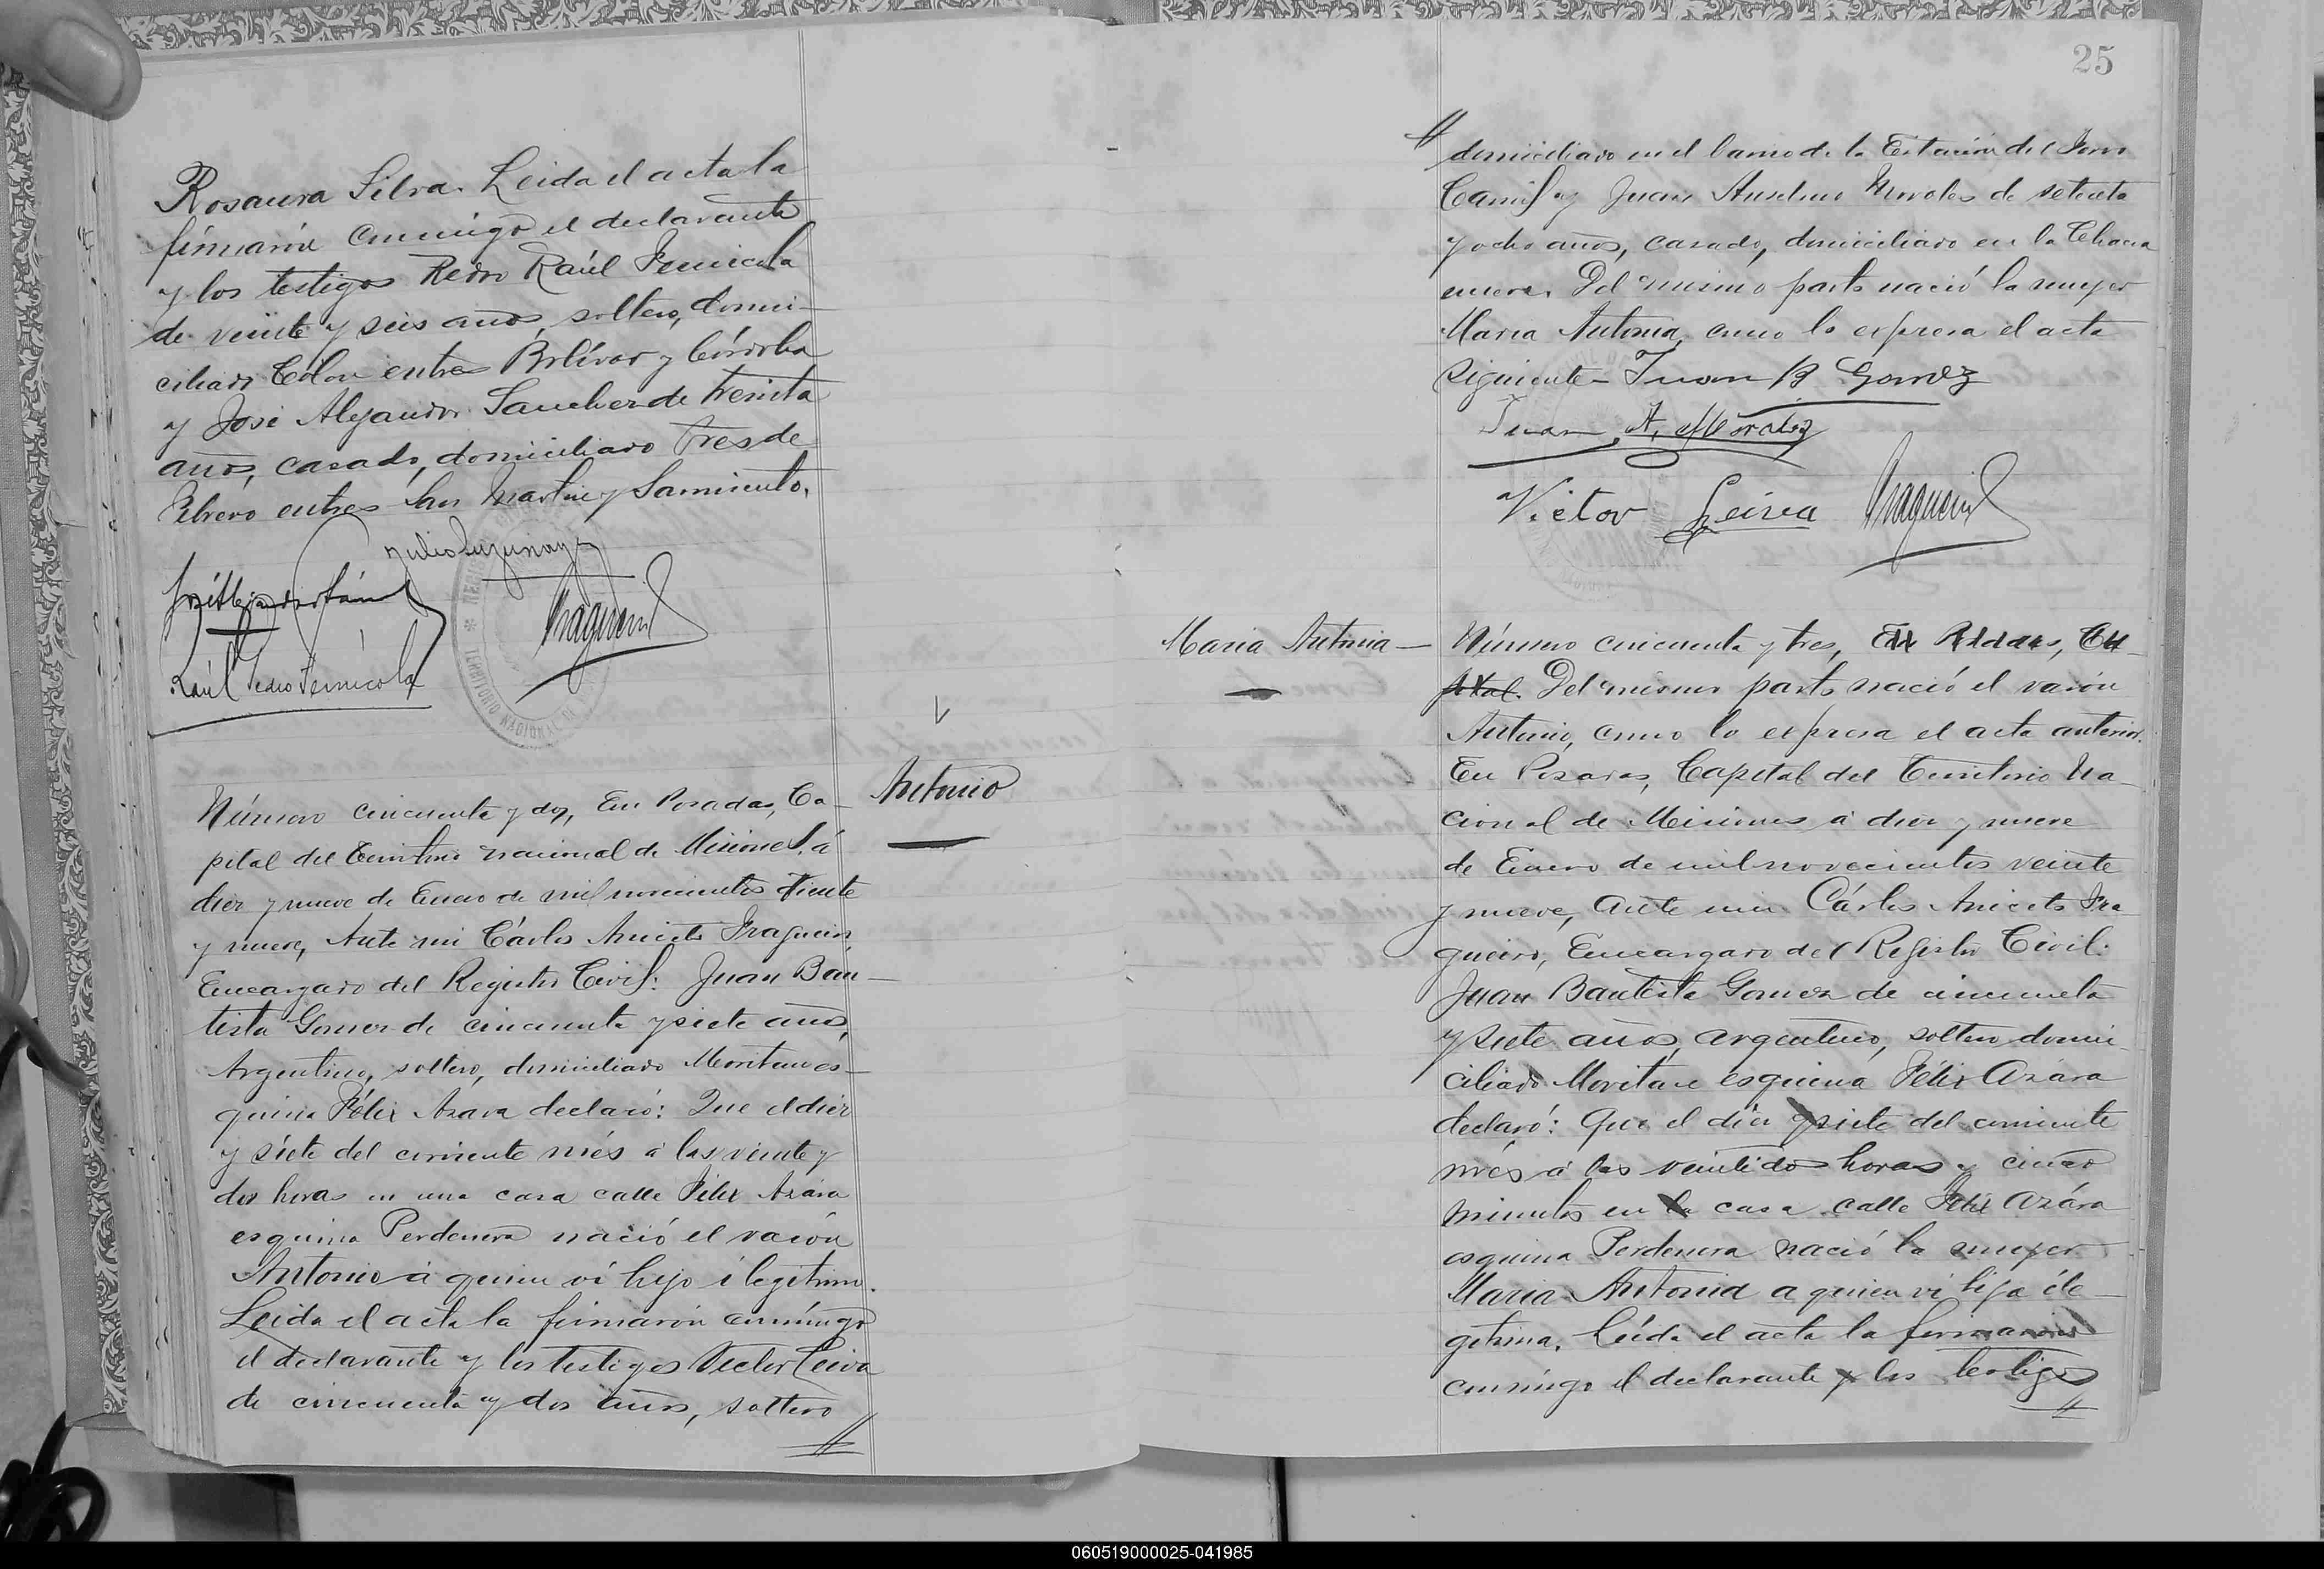 Rosaura Silva. Leida el acta la
firmaron conmigo el declarante
y los testigos Pedro Raúl Fernicola
de veinte y seis años, soltero, domi-
ciliado Colon entre Bolívar y Córdoba
y José Alejandro Sanchez de treinta
años, casado, domiciliado Tres de
Febrero entre San Martin y Sarmiento.
Raúl Pedro Fernicola
REGIS
TERRITORIO NACIONAL DE
Número cincuenta y dos, En Posadas, Ca-
pital del Territorio nacional de Misiones, á
diez y nueve de Enero de mil novecientos veinte
y nueve, Ante mi Cárlos Aniceto Fragueiro,
Encargado del Registro Civil: Juan Bau-
tista Gomez de cincuenta y siete años,
Argentino, soltero, domiciliado Moritan es-
quina Félix Azara declaró: Que el diez
y siete del corriente més á las veinte y
dos horas en una casa calle Félix Azára
esquina Perdenera nació el varón
Antonio á quien ví hijo ilegitimo.
Leida el acta la firmarón conmígo
el declarante y los testigos Victor Leiva
de cincuenta y dos años, soltero
Antonio
25
domiciliado en el barrio de la Estación del Ferro
Carril y Juan Anselmo Morales de setenta
y ocho años, casado, domiciliado en la Chacra
nueve. Del mismo parto nació la mujer
Maria Antonia, como lo expresa el acta
siguiente- Juan B Gomez
Juan A. Morales
Victor Leiva
Maria Antonia-
Número cincuenta y tres, En Posadas, Ca-
pital. Del mismo parto nació el varón
Antonio, como lo expresa el acta anterior.
En Posadas, Capital del Territorio Na-
cional de Misiones á diez y nueve
de Enero de mil novecientos veinte
y nueve, Ante mi Cárlos Aniceto Fra-
gueiro, Encargado del Registro Civil:
Juan Bautista Gomez de cincuenta
y siete años, argentino, soltero domi-
ciliado Moritan esquina Félix Azára
declaró: Que el diez y siete del corriente
més á las veintidos horas y cinco
minutos en la casa calle Felix Azára
esquina Perdenera nació la mujer
Maria Antonia a quien vi hija ile-
gitima. Leída el acta la firmaron
conmigo el declarante y los testigos
060519000025-041985